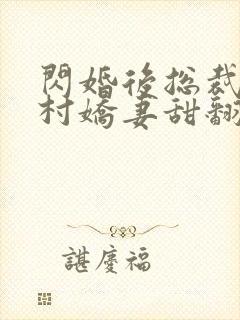 閃婚後總裁
村嬌妻甜翻
諶慶福